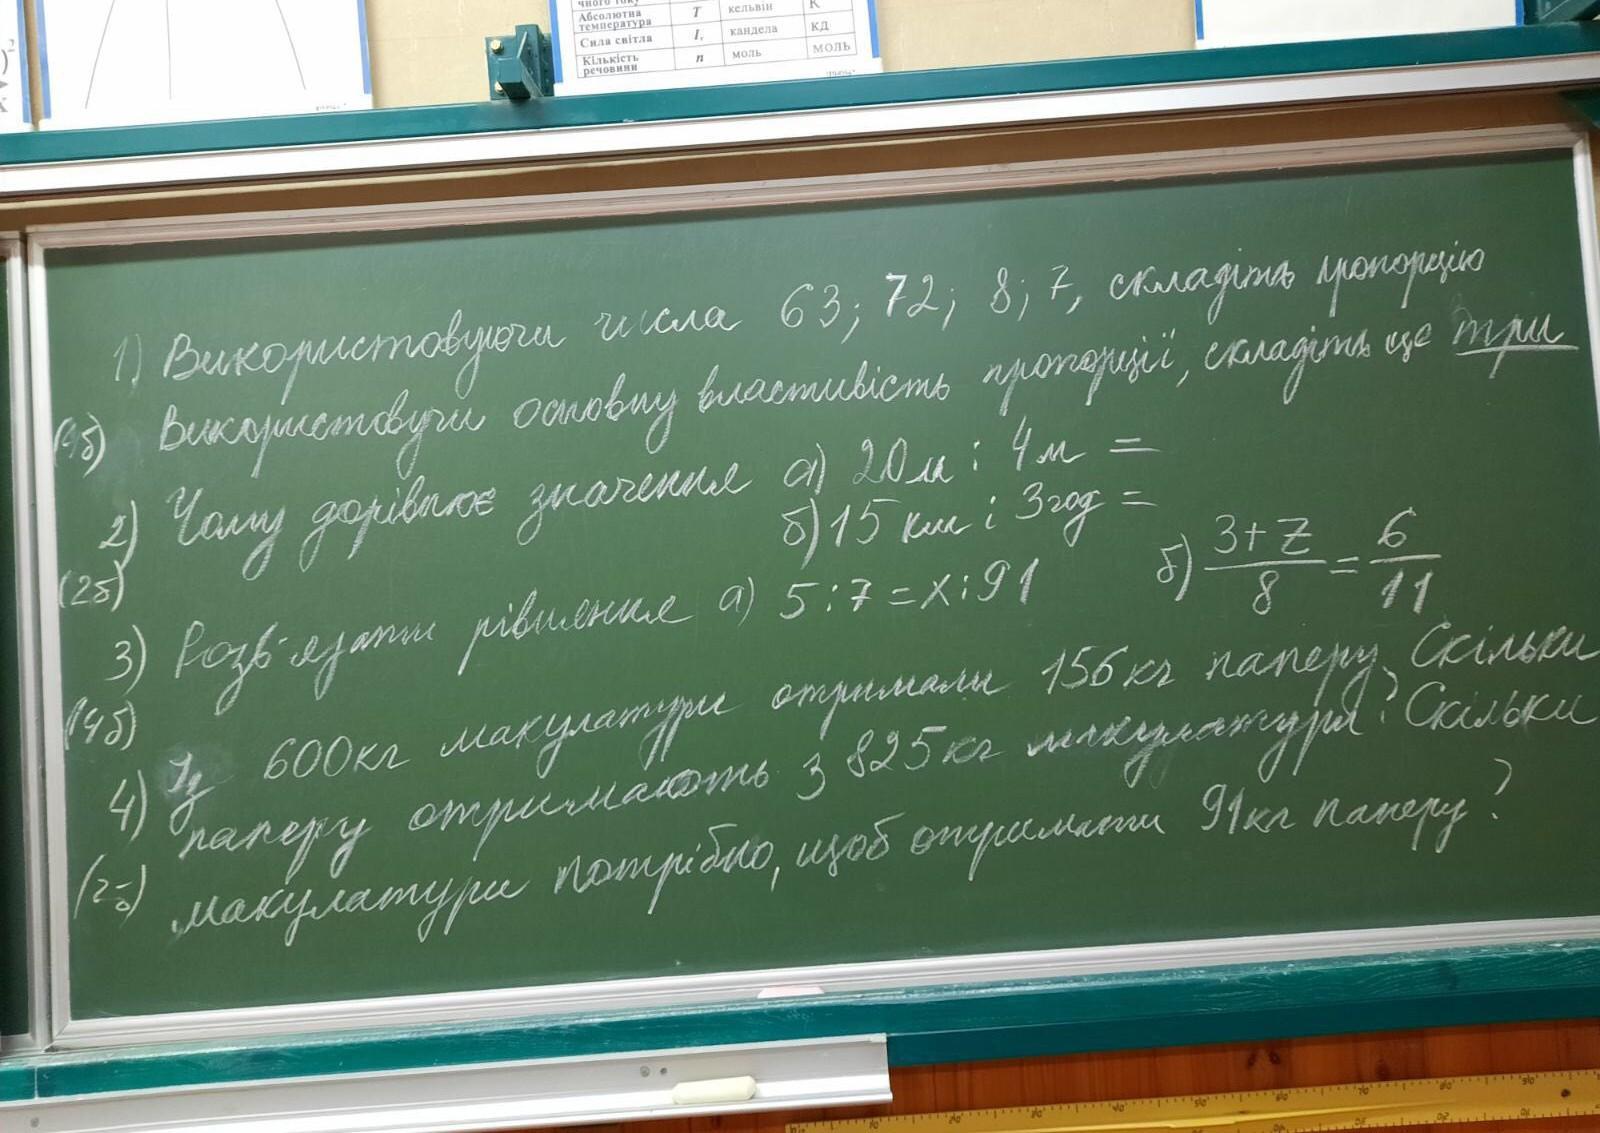 чного току
Абсолютна температура T кельвін К
Сила світла I, кандела КД
Кількість речовини n моль МОЛЬ
1) Використовуючи числа 63; 72; 8; 7, складіть пропорцію
(4б) Використовучи основну властивість пропорції, складіть ще три
2) Чому дорівнює значення а) 20м : 4м =
(2б) б) 15 км : 3год =
3) Розв'язати рівняння а) 5:7=x:91 б) (3+Z)/8 = 6/11
(4б)
4) Із 600кг макулатури отримали 156кг паперу. Скільки
паперу отримають з 825кг макулатури? Скільки
(2б) макулатури потрібно, щоб отримати 91кг паперу?